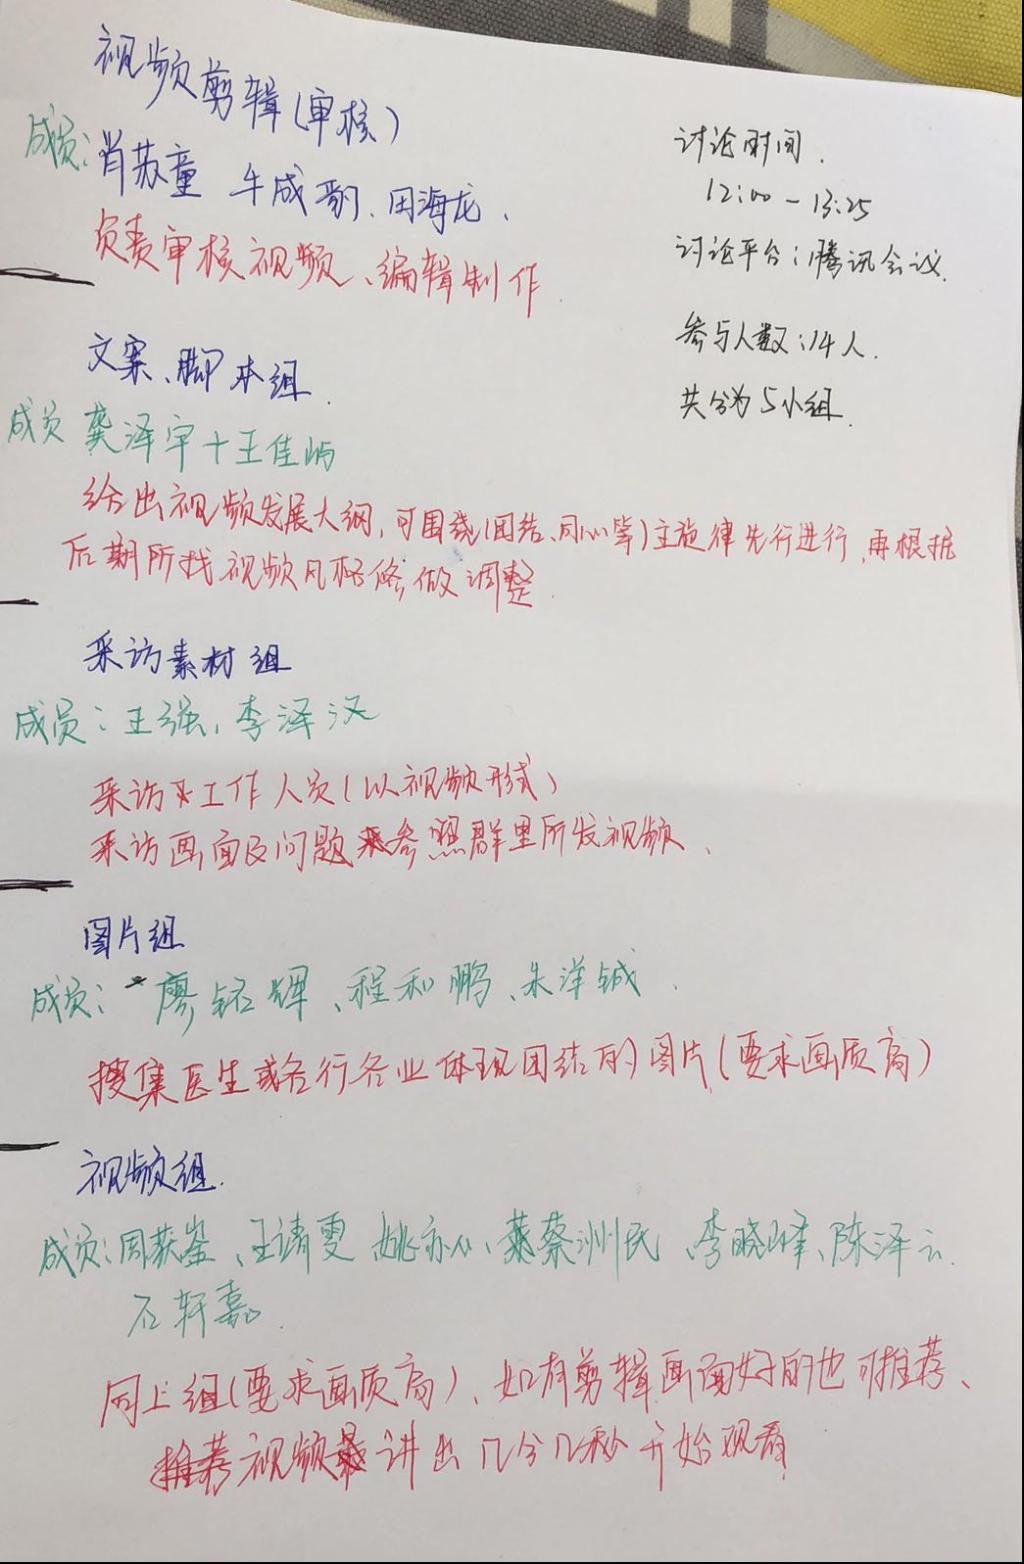 视频剪辑(审核)
成员:肖苏童 牛成 、田海龙、
负责审核视频、编辑制作
讨论时间.
12:00-13:25
讨论平台:腾讯会议.
参与人数:14人.
共分为5小组.
文案、脚本组.
成员 龚泽宇+王佳屿
给出视频发展大纲,可围绕(团结、同心等)主旋律先行进行,再根据
后期所找视频风格修做调整.
采访素材组
成员:王强,李泽汉
采访 工作人员(以视频形式)
采访画面及问题 参照群里所发视频、
图片组
成员: 廖铭辉、程和鹏、朱洋铖.
搜集医生或各行各业体现团结的图片(要求画质高)
视频组.
成员:周荻 、王靖雯 姚 、蔡洲民、李晓峰、陈泽云.
石轩嘉.
同上组(要求画质高)、如有剪辑画面好的也可推荐、
推荐视频 讲出几分几秒开始观看